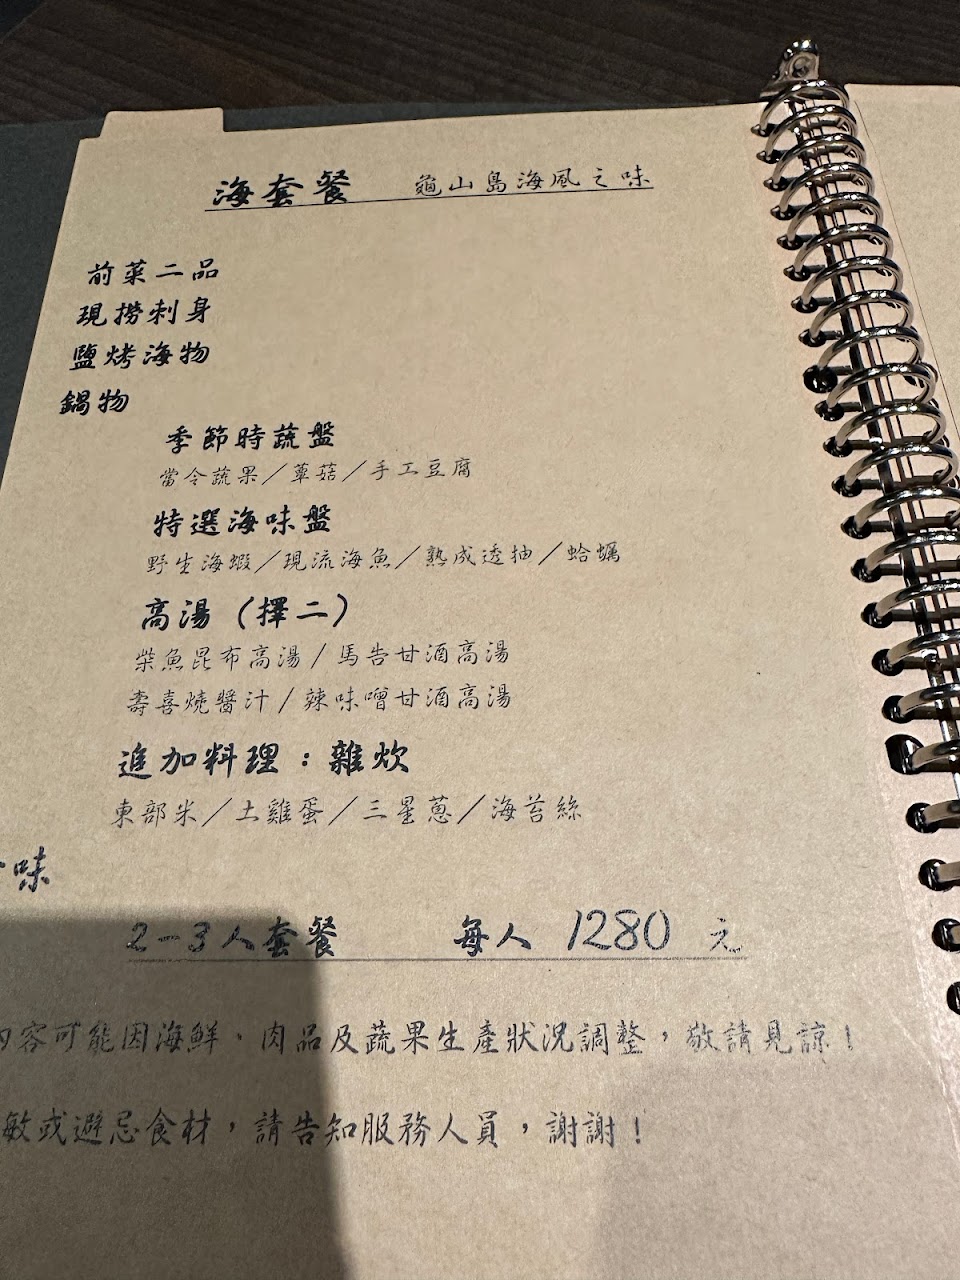 海套餐 龜山島海風之味
前菜二品
現撈刺身
鹽烤海物
鍋物
季節時蔬盤
當令蔬果／蕈菇／手工豆腐
特選海味盤
野生海蝦／現流海魚／熟成透抽／蛤蠣
高湯（擇二）
柴魚昆布高湯／馬告甘酒高湯
壽喜燒醬汁／辣味噌甘酒高湯
追加料理：雜炊
東部米／土雞蛋／三星蔥／海苔絲
味
2-3人套餐 每人 1280 元
內容可能因海鮮、肉品及蔬果生產狀況調整，敬請見諒！
敏或避忌食材，請告知服務人員，謝謝！